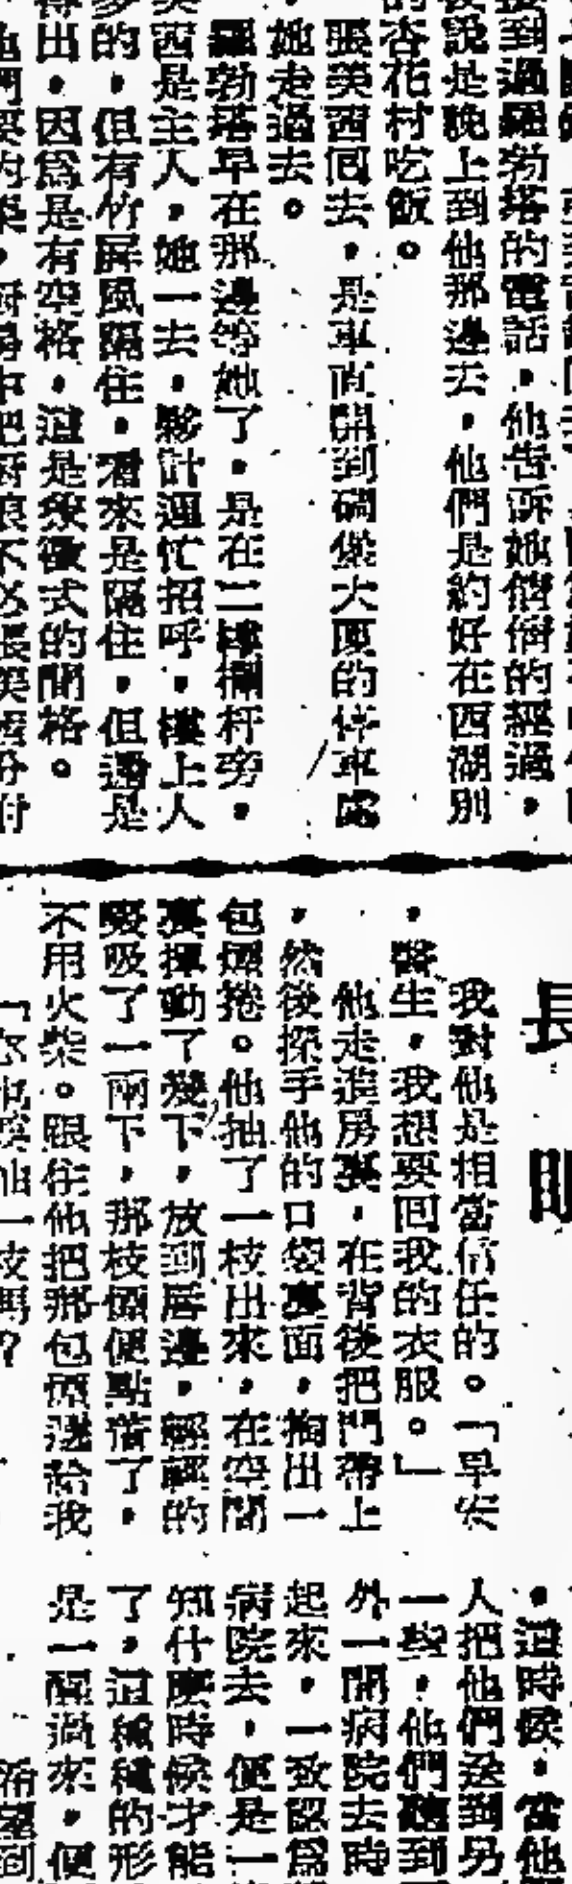 接到過羅勃塔的電話，他告訴她倩倩的經過，
後說是晚上到他那邊去，他們是約好在西湖別
的杏花村吃飯。
張美茜回去，是車直開到碉堡大厦的停車處
她走過去。
羅勃塔早在那邊等她了，是在二樓欄杆旁，
美西是主人，她一去，夥計連忙招呼，樓上人
多的，但有竹屏風隔住，看來是隔住，但還是
傳出，因爲是有空格，這是象徵式的間格。
長
眼
我對他是相當信任的。「早安
，醫生，我想要回我的衣服。」
他走進房裏，在背後把門帶上
，然後探手他的口袋裏面，掏出一
包煙捲。他抽了一枝出來，在空間
裏揮動了幾下，放到唇邊，輕輕的
吸了一兩下，那枝煙便點着了，
不用火柴。跟住他把那包煙遞給我
，這時候，當他
人把他們送到另
一些，他們聽到
外一間病院去時
起來，一致認爲
病院去，便是一
知什麼時候才能
了，這種種的形
是一醒過來，便